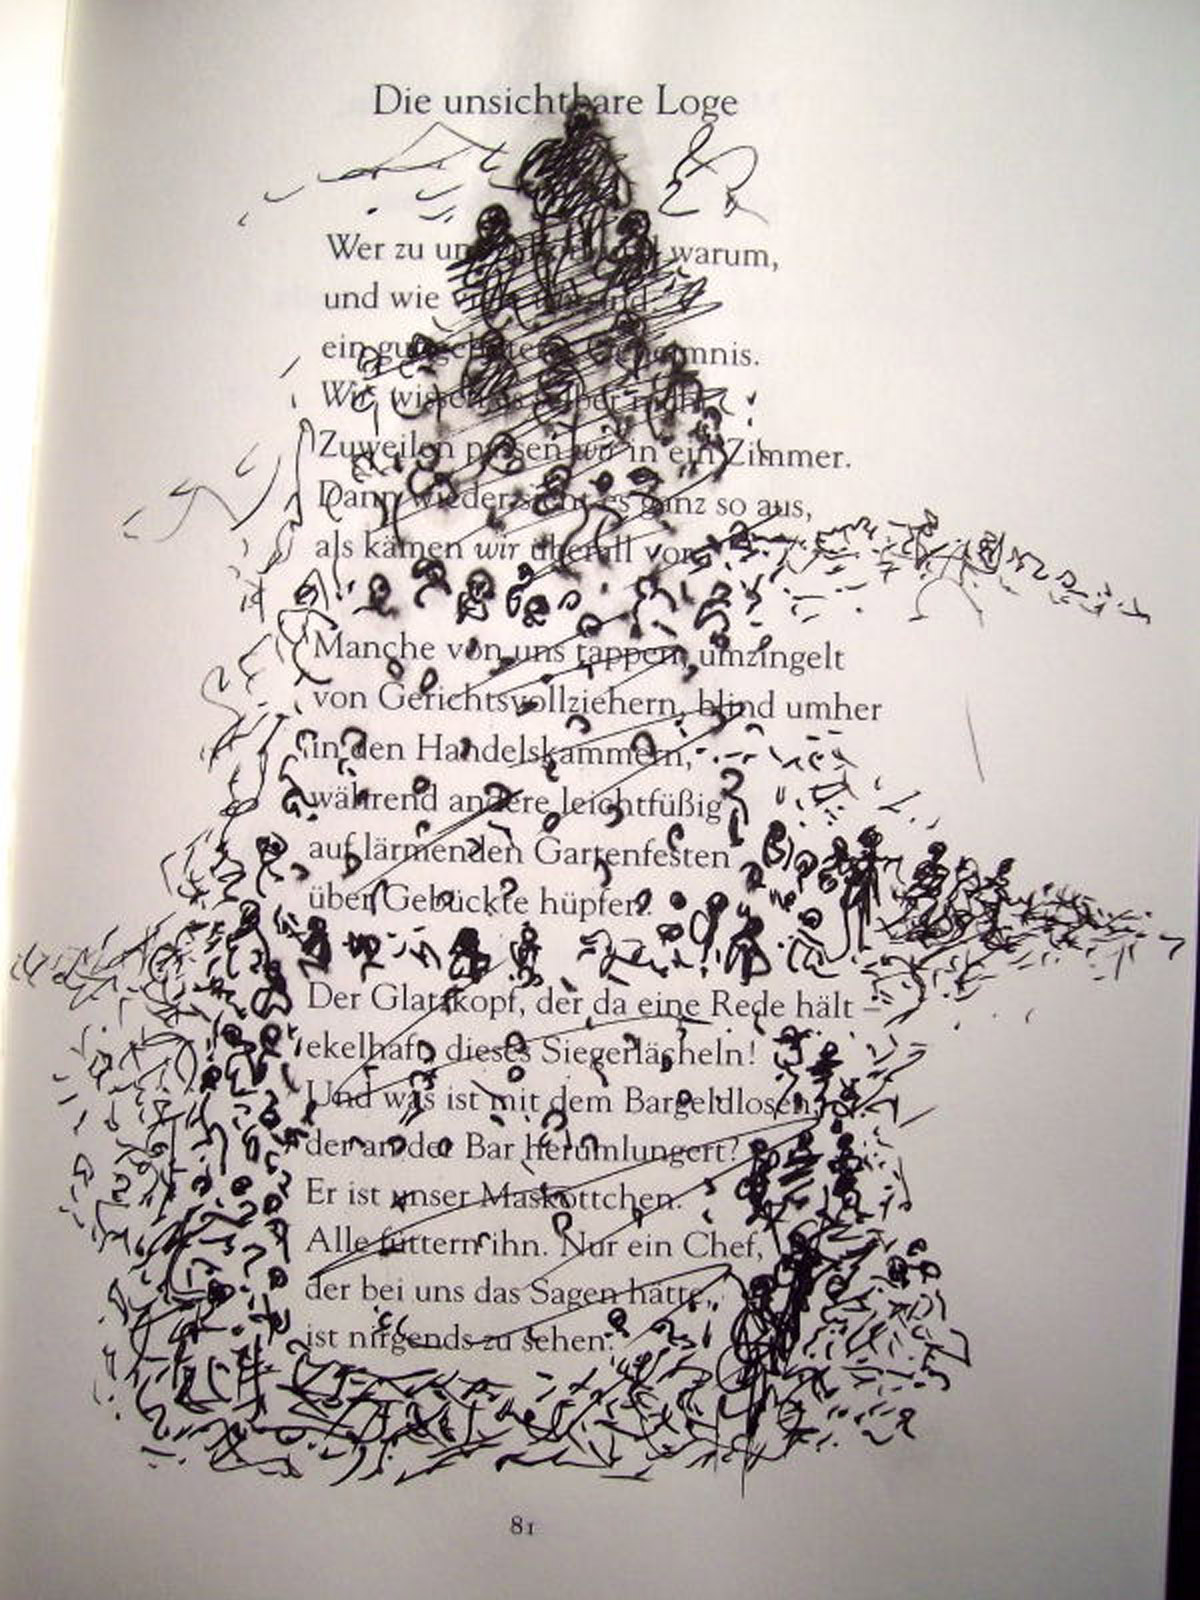 Die unsichtbare Loge
Wer zu uns warum,
und wie viele wir sind
ein gutgehütetes Geheimnis.
Wir wissen es selber nicht.
Zuweilen passen wir in ein Zimmer.
Dann wieder sieht es ganz so aus,
als kämen wir überall vor.
Manche von uns tappen, umzingelt
von Gerichtsvollziehern, blind umher
in den Handelskammern,
während andere leichtfüßig
auf lärmenden Gartenfesten
über Gebückte hüpfen.
Der Glatzkopf, der da eine Rede hält –
ekelhaft, dieses Siegerlächeln!
Und was ist mit dem Bargeldlosen,
der an der Bar herumlungert?
Er ist unser Maskottchen.
Alle füttern ihn. Nur ein Chef,
der bei uns das Sagen hätte,
ist nirgends zu sehen.
81